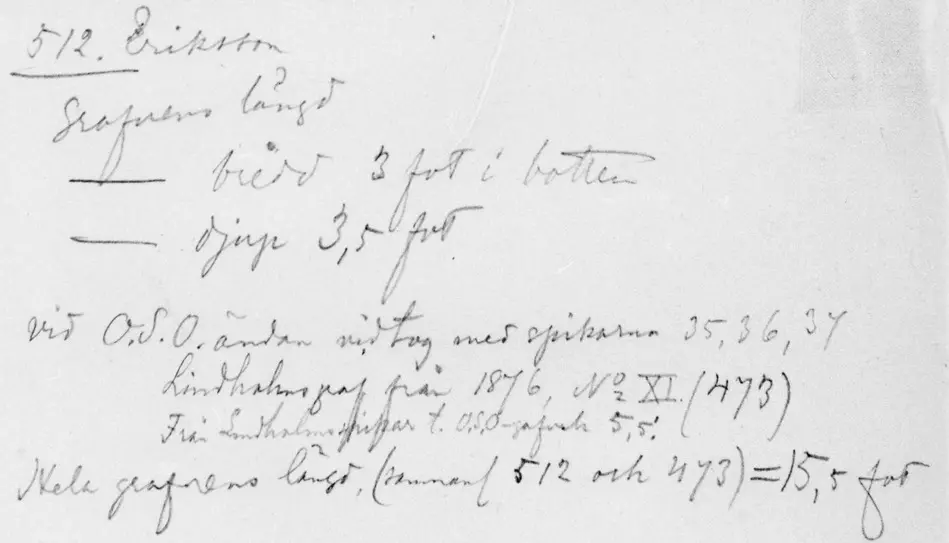 512. Eriksson
Grafvens längd
— bredd 3 fot i botten
— djup 3,5 fot
vid O.S.O. ändan vidtog med spikarna 35, 36, 37
Lindholmsgraf från 1876, No XI. (473)
Från Lindholms t. O.S.O- 5,5'.
Hela grafvens längd, (samman 512 och 473) = 15,5 fot